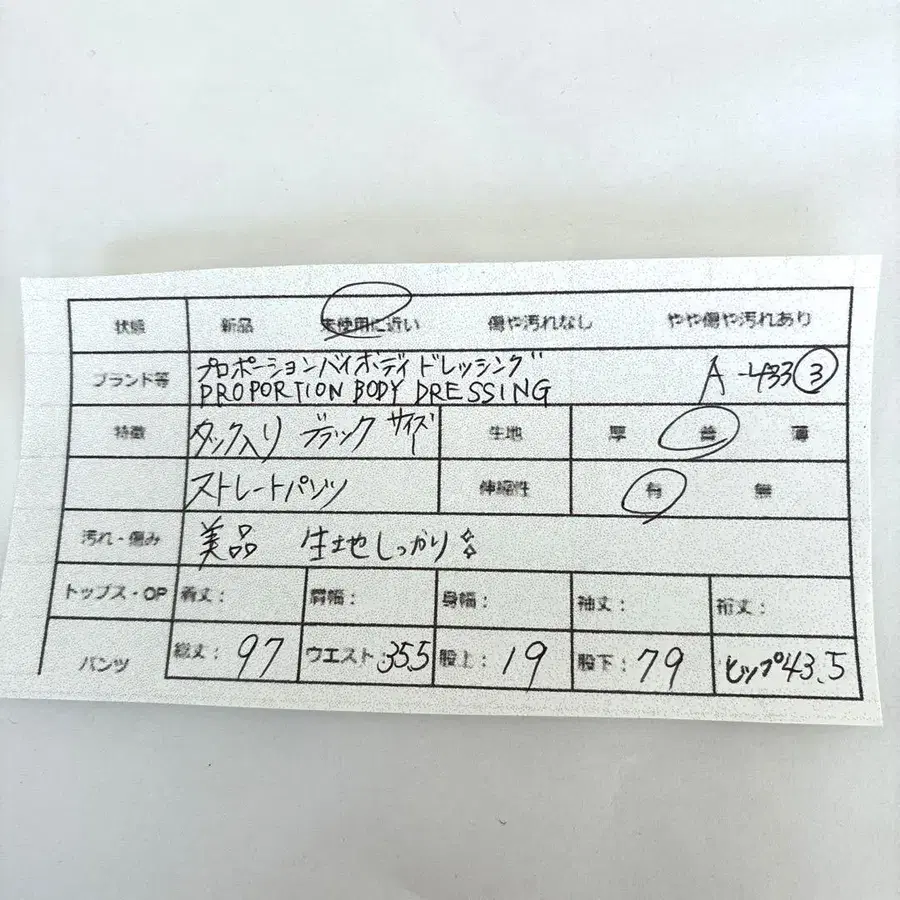 状態 新品 未使用に近い 傷や汚れなし やや傷や汚れあり
ブランド等 プロポーションバイボディドレッシング A-433 3
PROPORTION BODY DRESSING
特徴 タック入り ブラック サイズ 生地 厚 普 薄
ストレートパンツ 伸縮性 有 無
汚れ・傷み 美品 生地しっかり
トップス・OP 着丈： 肩幅： 身幅： 袖丈： 裄丈：
パンツ 総丈：97 ウエスト：35.5 股上：19 股下：79 ヒップ43.5